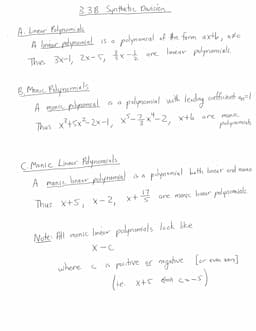 §3B Synthetic Division
A. Linear Polynomials
A linear polynomial is a polynomial of the form ax+b, a≠0
Thus 3x-1, 2x-5, are linear polynomials.
B. Monic Polynomials
A monic polynomial is a polynomial with leading coefficient =1
Thus x³+5x²-2x-1, x⁵-x⁴-2, x+6 are monic
polynomials
C. Monic Linear Polynomials
A monic linear polynomial is a polynomial both linear and monic
Thus x+5, x-2, x+17/5 are monic linear polynomials.
Note: All monic linear polynomials look like
x-c
where c is positive or negative [or even zero]
(i.e. x+5 has c=-5)